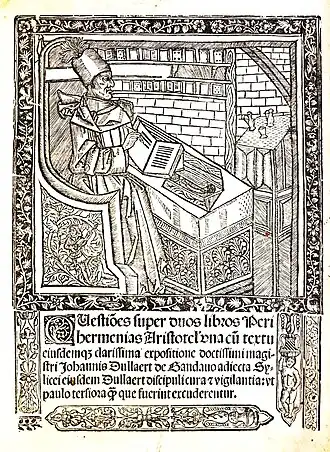 Questiões super duos libros Peri
hermenias Aristotel' una cũ textu
eiusdemq; clarissima expositione doctissimi magi-
stri Johannis Dullaert de Gandavo adiecta Sy-
licei eiusdem Dullaert discipuli cura & vigilantia: ut
paulo tersiora q̃ que fuerint excuderentur.